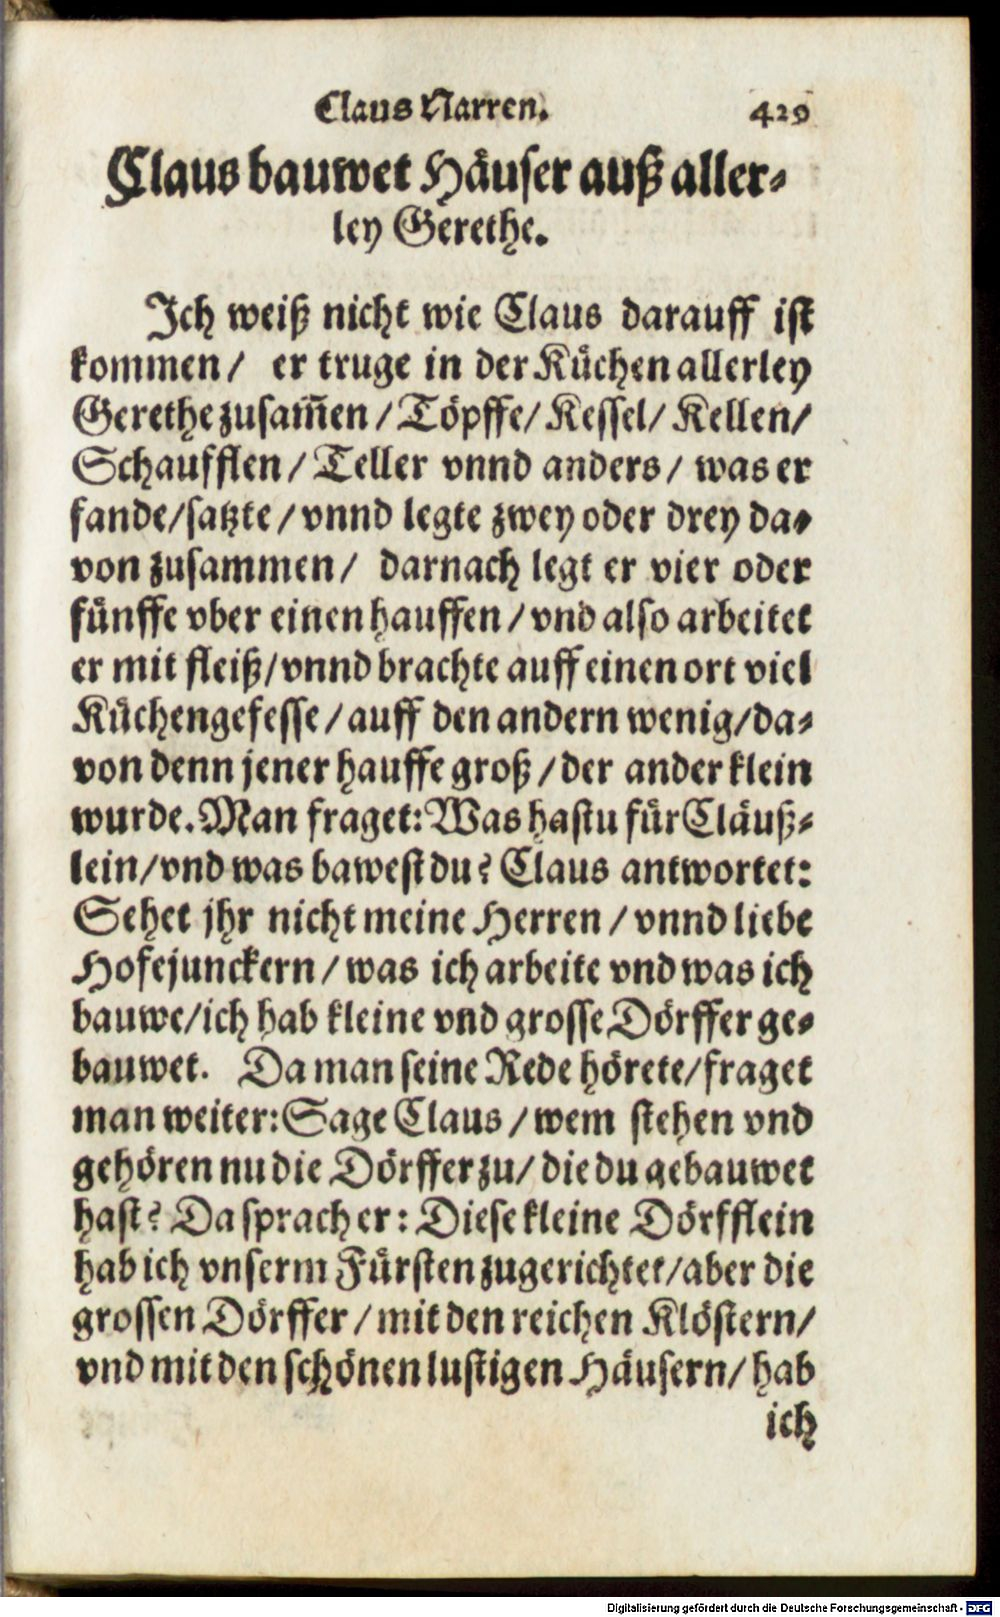 Claus Narren. 429
Claus bauwet Häuser auß aller-
ley Gerethe.
Ich weiß nicht wie Claus darauff ist
kommen / er truge in der Küchen allerley
Gerethe zusam̃en / Töpffe / Kessel / Kellen /
Schaufflen / Teller vnnd anders / was er
fande / satzte / vnnd legte zwey oder drey da-
von zusammen / darnach legt er vier oder
fünffe vber einen hauffen / vnd also arbeitet
er mit fleiß / vnnd brachte auff einen ort viel
Küchengefesse / auff den andern wenig / da-
von denn jener hauffe groß / der ander klein
wurde. Man fraget: Was hastu für Cläuß-
lein / vnd was bawest du? Claus antwortet:
Sehet jhr nicht meine Herren / vnnd liebe
Hofejunckern / was ich arbeite vnd was ich
bauwe / ich hab kleine vnd grosse Dörffer ge-
bauwet. Da man seine Rede hörete / fraget
man weiter: Sage Claus / wem stehen vnd
gehören nu die Dörffer zu / die du gebauwet
hast? Da sprach er: Diese kleine Dörfflein
hab ich vnserm Fürsten zugerichtet / aber die
grossen Dörffer / mit den reichen Klöstern /
vnd mit den schönen lustigen Häusern / hab
ich
Digitalisierung gefördert durch die Deutsche Forschungsgemeinschaft - DFG